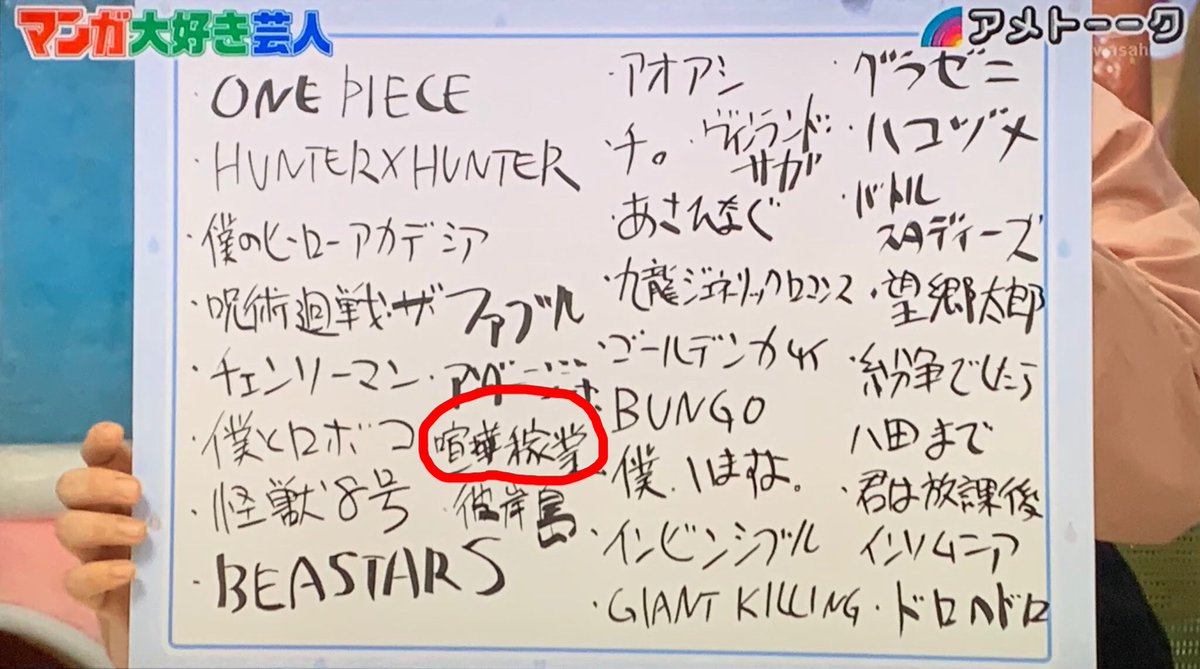 マンガ大好き芸人
アメトーーク
・ONE PIECE
・HUNTER×HUNTER
・僕のヒーローアカデミア
・呪術廻戦・ザ ファブル
・チェンソーマン・
・僕とロボコ 喧嘩稼業
・怪獣8号 ・彼岸島
・BEASTARS
・アオアシ
・チ。・ヴィンランド・
サガ
・あさひなぐ
・九龍ジェネリックロマンス
・ゴールデンカムイ
・BUNGO
・僕、
・インビンシブル
・GIANT KILLING
・グラゼニ
・ハコヅメ
・バトル
スタディーズ
・望郷太郎
・紛争でしたら
八田まで
・君は放課後
インソムニア
・ドロヘドロ